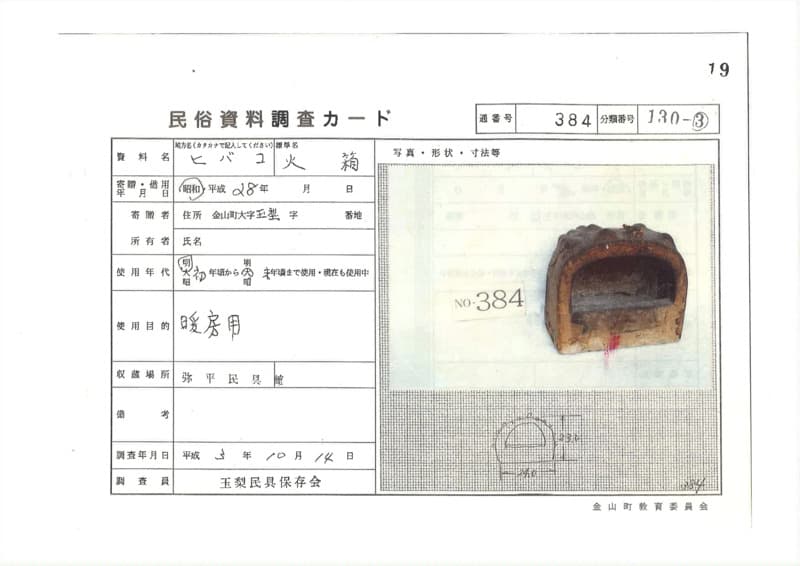 19
民俗資料調査カード
通番号 384 分類番号 130-③
資料名 地方名(カタカナで記入してください) ヒバコ 標準名 火箱
写真・形状・寸法等
寄贈・借用年月日 昭和・平成 28年 月 日
寄贈者 住所 金山町大字玉梨 字 番地
所有者 氏名
使用年代 明大昭 初年頃から 明大昭 末年頃まで使用・現在も使用中
使用目的 暖房用
収蔵場所 弥平民具館
備考
調査年月日 平成 3年 10月 14日
調査員 玉梨民具保存会
NO-384
23.0
384
金山町教育委員会